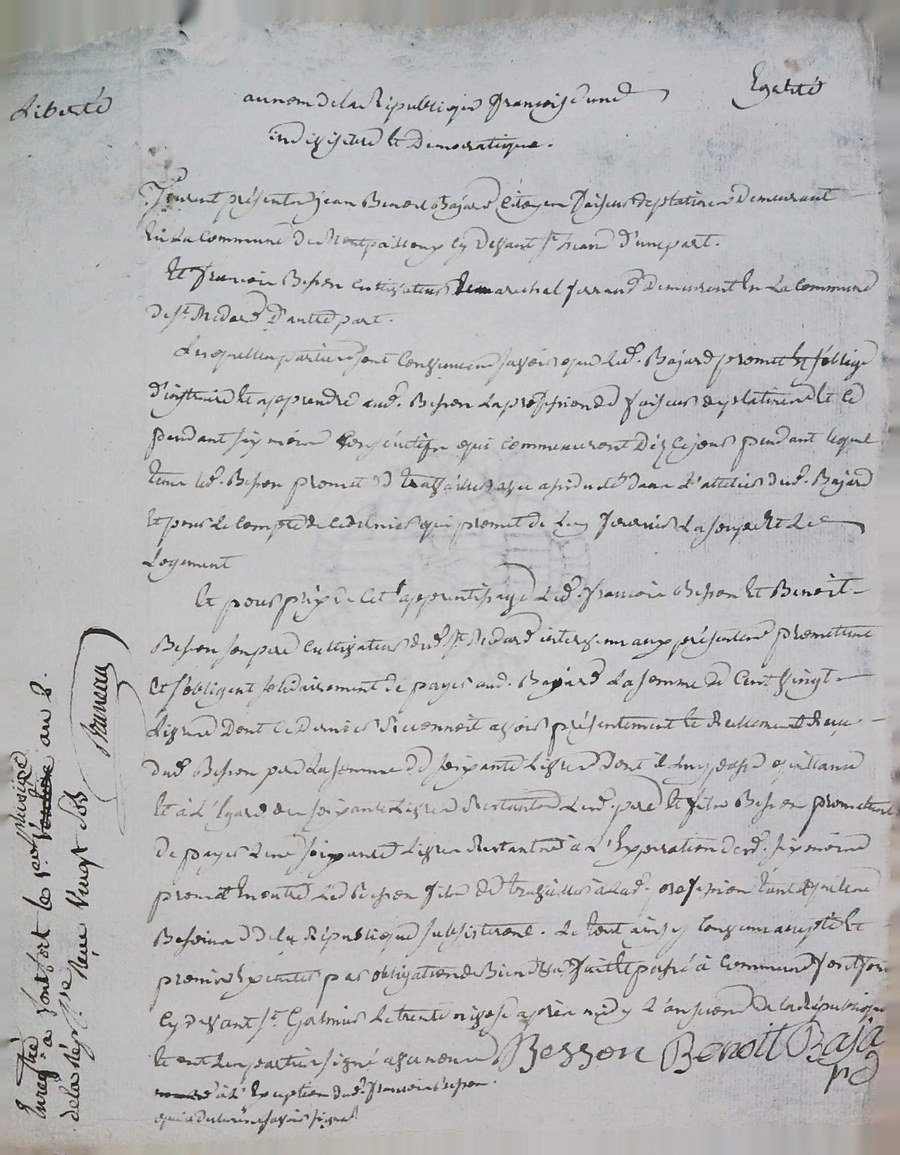 Liberté
Egalité
au nom de la Republique francoise une
indivisible et Democratique.
furent présents jean Benoit Bajard Citoyen faiseur de platines Demeurant
En La Commune de cy Devant st. D'une part.
Et francois Besson Cultivateur marechal ferrand Demeurant En La Commune
de st. Medard D'autre part.
Lesquelles parties sont Convenues savoir que Led. Bajard promet et s'oblige
D'instruire et apprendre aud. Besson La profession de faiseur de platines et ce
pendant six mois Consécutifs qui Commenceront Dez Ce jour pendant lequel
tems led. Besson promet de travailler avec assiduité Dans L'attelier dud. Bajard
Et pour Le Compte de Ce dernier qui promet de Luy fournir La soupe Et Le
Logement
Et pour prix de Cet apprentissage Led. francois Besson Et Benoit
Besson son pere Cultivateur dud. st. Medard intervenu aux présentes promettent
Et s'obligent solidairement de payer aud. Bajard La somme de Cent Vingt
Livres Dont Ce Dernier Reconnoit avoir présentement et Reellement Reçu
dud. Besson pere La somme de soixante Livres Dont il Luy passe quittance
Et à L'Egard des soixante Livres Restantes Lesd. pere Et fils Besson promettent
De payer Les soixante Livres Restantes à L'Expiration desd. six mois
promet En outre Led Besson fils de travailler à Lad. profession tant que les
Besoins de la République subsisteront. Le tout ainsy Convenu accepté Et
promis Executer par obligation de Biens fait Et passé à Commune fort
Cy devant st. Galmier Le trente nivose après midy L'an second de la République
et ont Les parties signé avec nous
à L'Exception dud. francois Besson
qui a Declaré ne savoir signer
Besson Benoit Baja
rd
Enregtré à fontfort le pluviose an 2.
de la Rép. Reçu Vingt sols